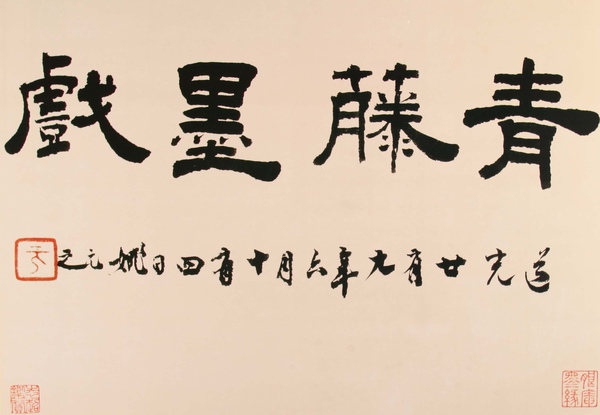 青藤墨戲
道光廿有九年六月十有四日姚元之